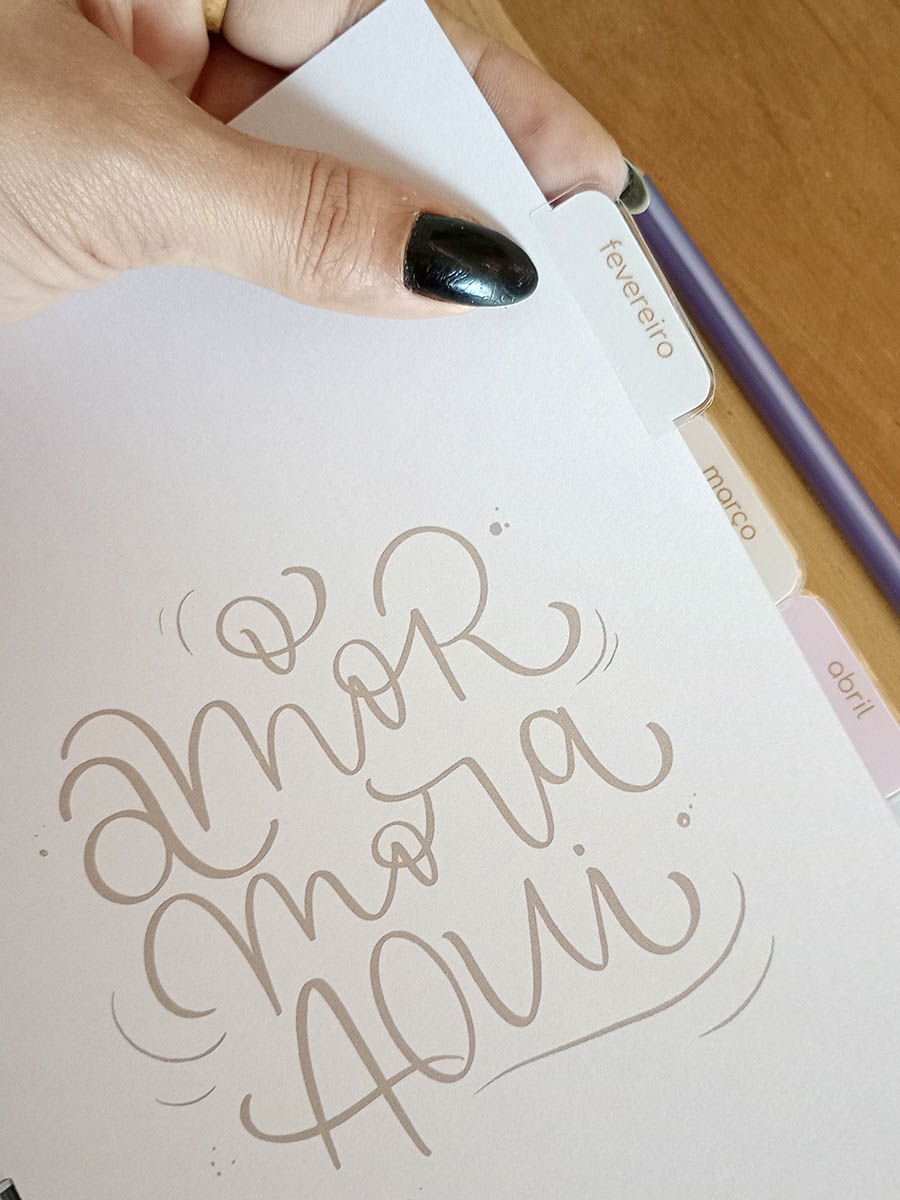 fevereiro
março
abril
o
amor
mora
AQUi